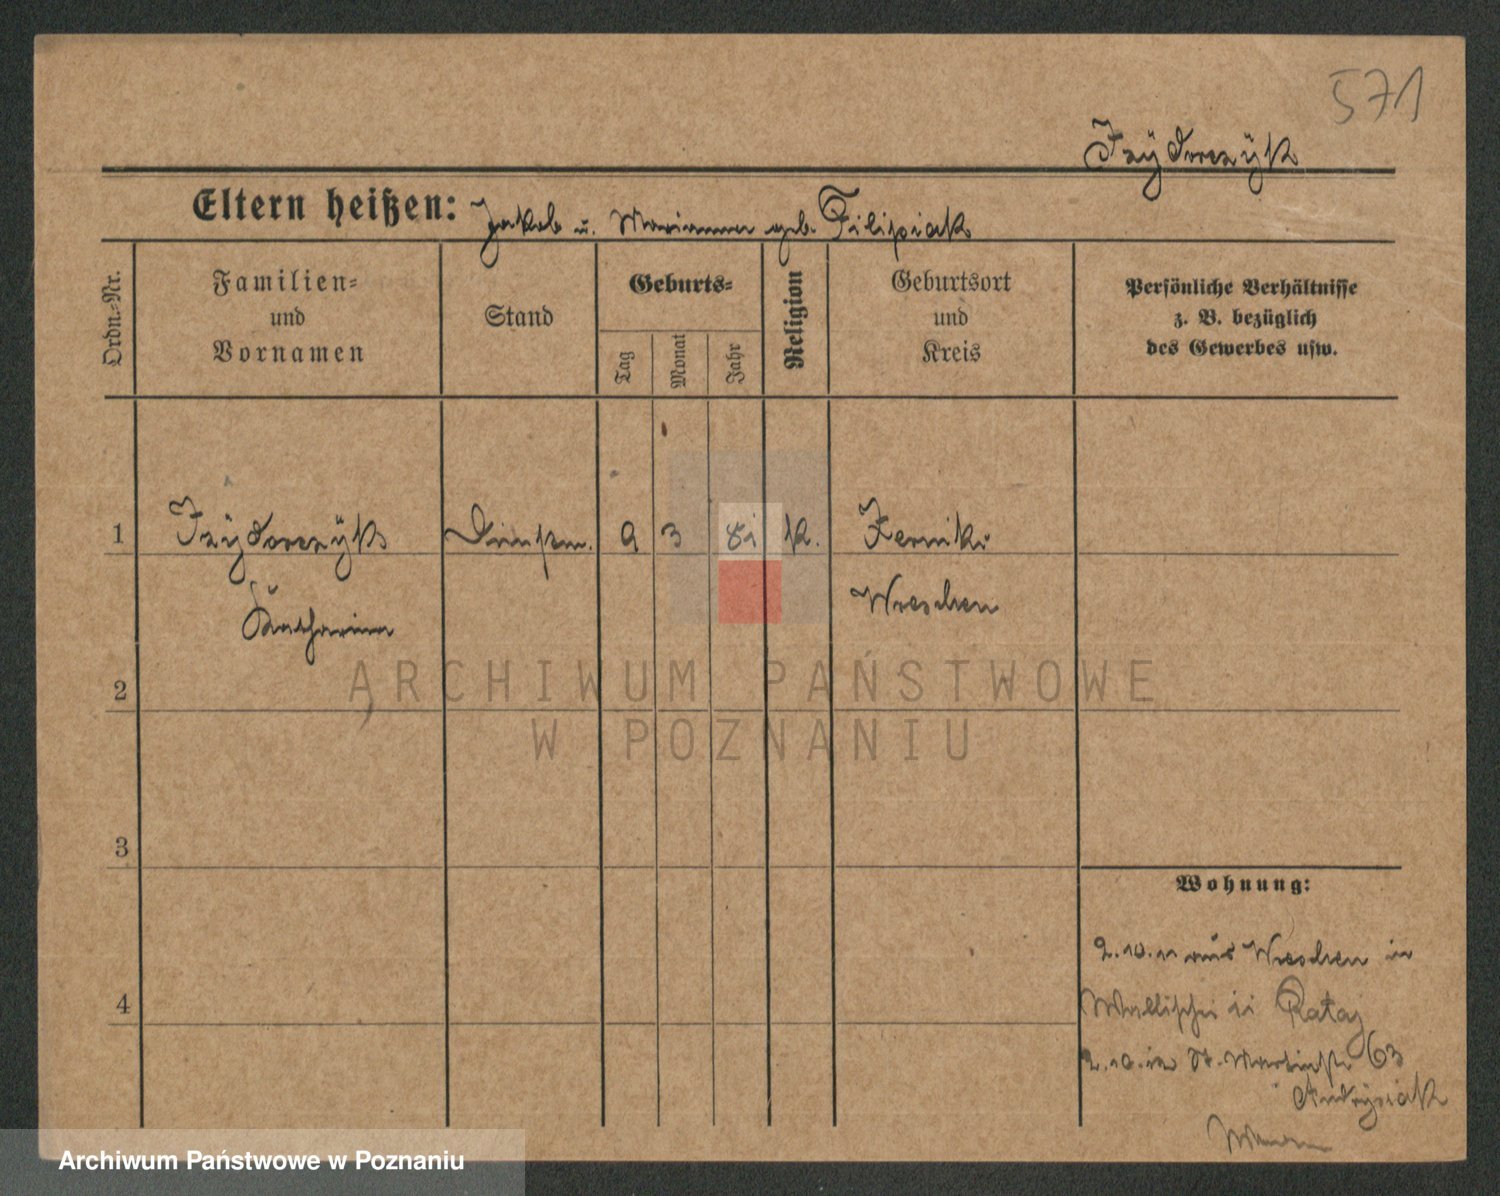 571
Izÿdorczÿk
Eltern heißen: Jakob u. Marianna geb. Filipiak
Ordn.-Nr.
Familien-
und
Vornamen
Stand
Geburts-
Tag
Monat
Jahr
Religion
Geburtsort
und
Kreis
Persönliche Verhältnisse
z. B. bezüglich
des Gewerbes usw.
1 Izÿdorczÿk Dienstm. 9 3 81 k. Zerniki
Katharina Wreschen
ARCHIWUM PAŃSTWOWE
W POZNANIU
2
3
4
Wohnung:
2.10.11 aus Wreschen in
Wallischei 11 Rataj
2.10.12 St. Martinstr 63
Andrysiak
Archiwum Państwowe w Poznaniu